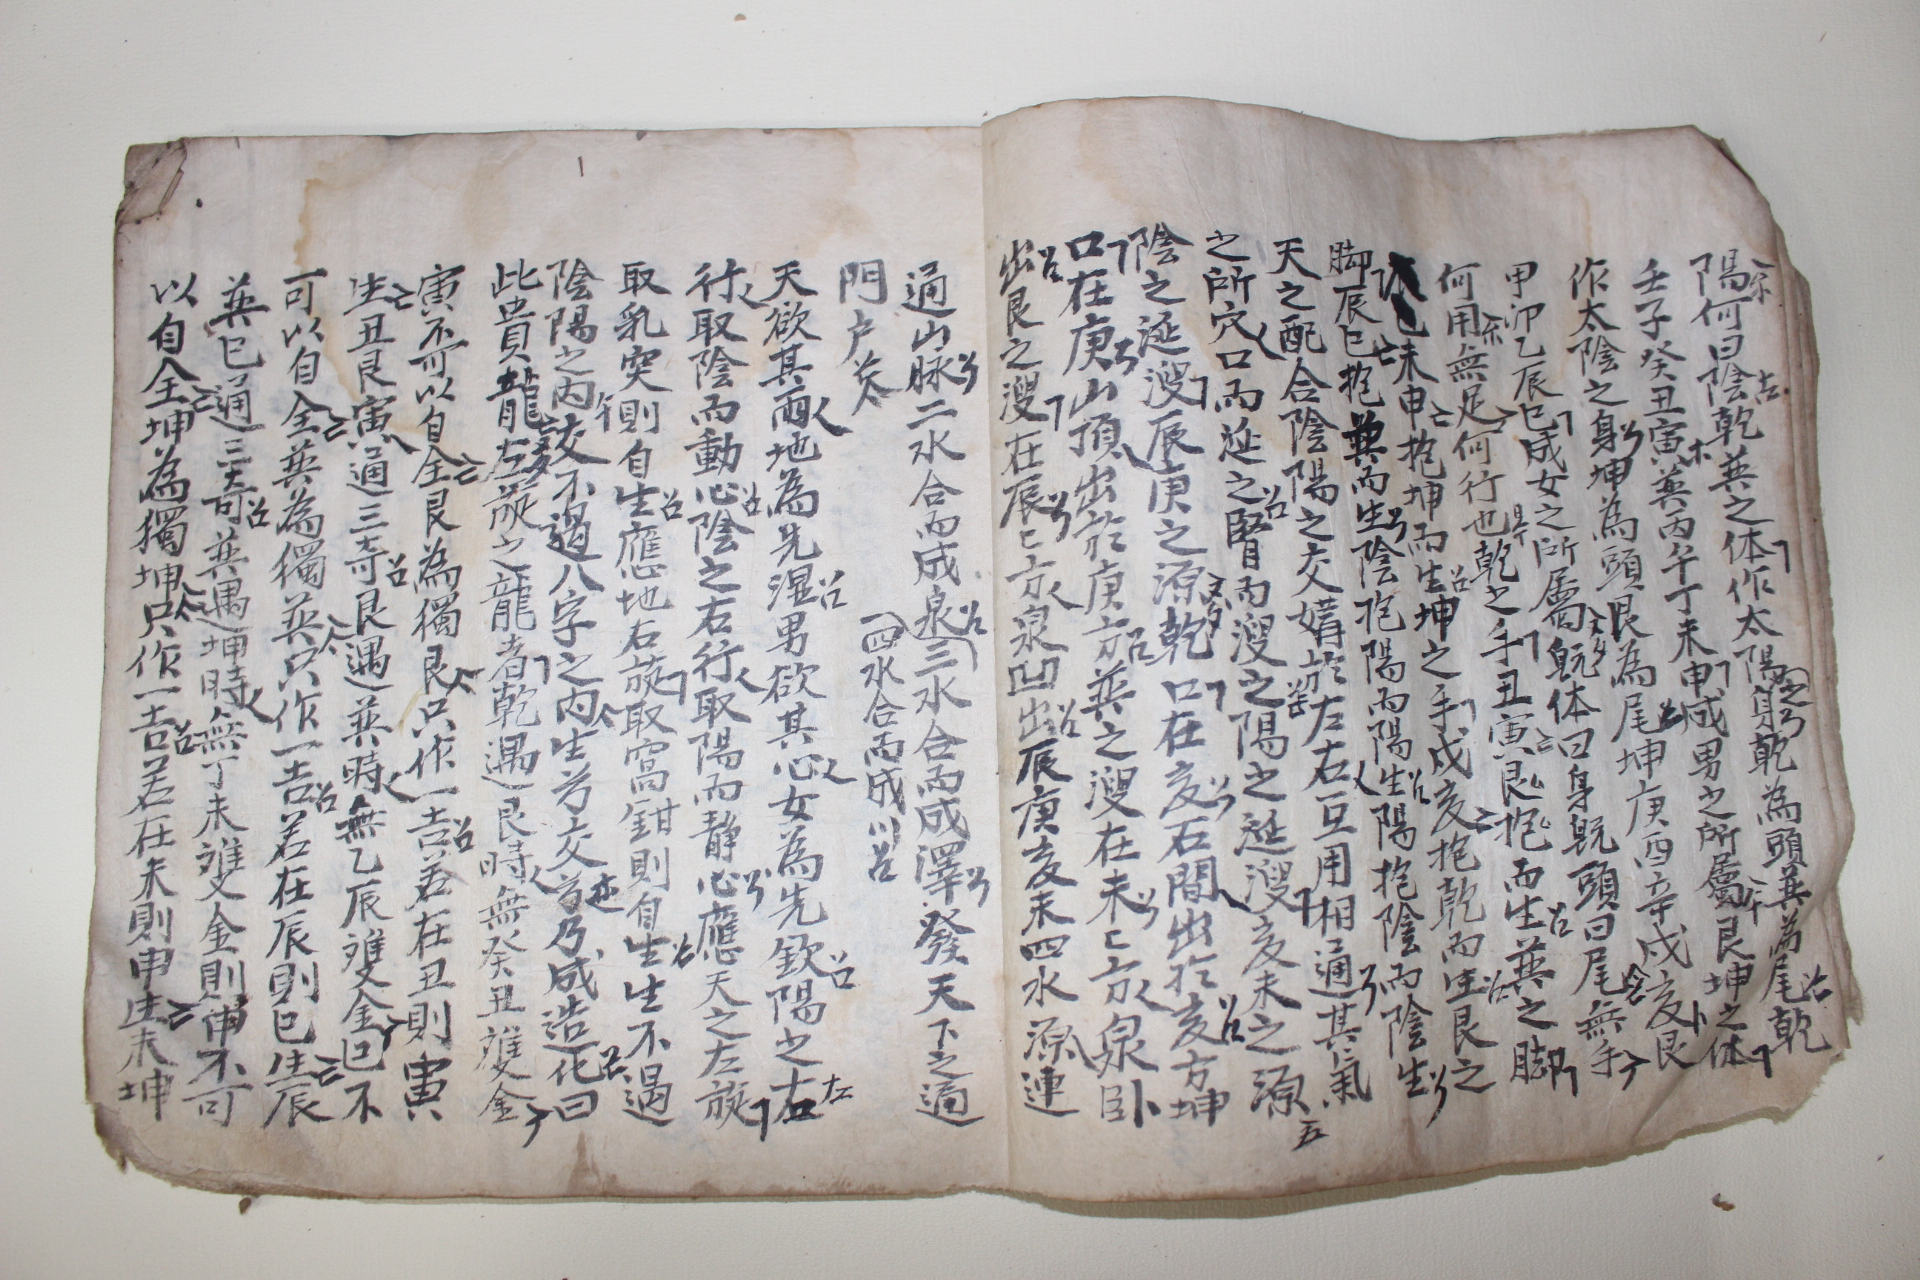 陽何曰陰乾巽之体作太陽之身乾為頭巽為尾乾
壬子癸丑寅巽丙午丁未申成男之所屬艮坤之体
作太陰之身坤為頭艮為尾坤庚酉辛戌亥艮
甲卯乙辰巳成女之所屬既体曰身既頭曰尾無手
何用無足何行也乾之手丑寅艮抱而生巽之脚
巳未申抱坤而生坤之手戌亥抱乾而生艮之
脚辰巳抱巽而生陰抱陽而陽生陽抱陰而陰生
天之配合陰陽之交媾於左右互用相通其氣
之所穴口而涎之腎而溲之陽之涎溲亥未之源
陰之涎溲辰庚之源乾口在亥石間出於亥方坤
口在庚山頂出於庚方巽之溲在未未方泉卧
出艮之溲在辰辰方泉凹出辰庚亥未四水源連
通山脉二水合而成泉三水合而成澤發天下之通
門户 四水合而成川
天欲其雨地為先濕男欲其心女為先欽陽之右
行取陰而動心陰之右行取陽而靜心應天之左旋
取乳突則自生應地右旋取窩鉗則自生生不過
陰陽之內交不過八字之內生方交方乃成造化曰
此貴龍左旋之龍者乾遇艮時無癸丑雙金
寅不可以自全艮為獨艮只作一吉若在丑則寅
生丑艮寅通三奇艮遇巽時無乙辰雙金巳不
可以自全巽為獨巽只作一吉若在辰則巳生辰
巽巳通三奇巽遇坤時無丁未雙金則申不可
以自全坤為獨坤只作一吉若在未則申生未坤